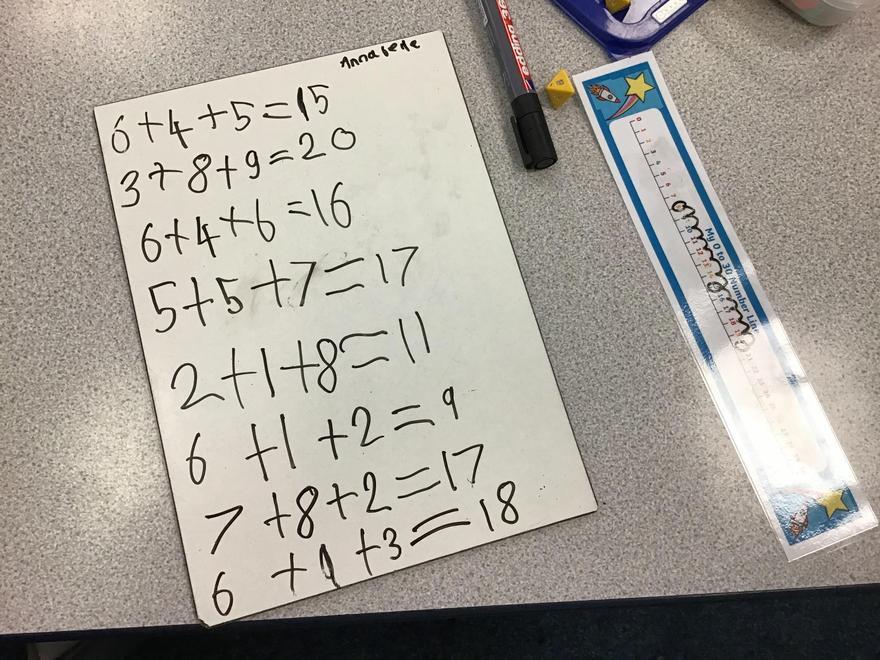 Annabelle
6+4+5=15
3+8+9=20
6+4+6=16
5+5+7=17
2+1+8=11
6+1+2=9
7+8+2=17
6+9+3=18
My 0 to 30 Number Line